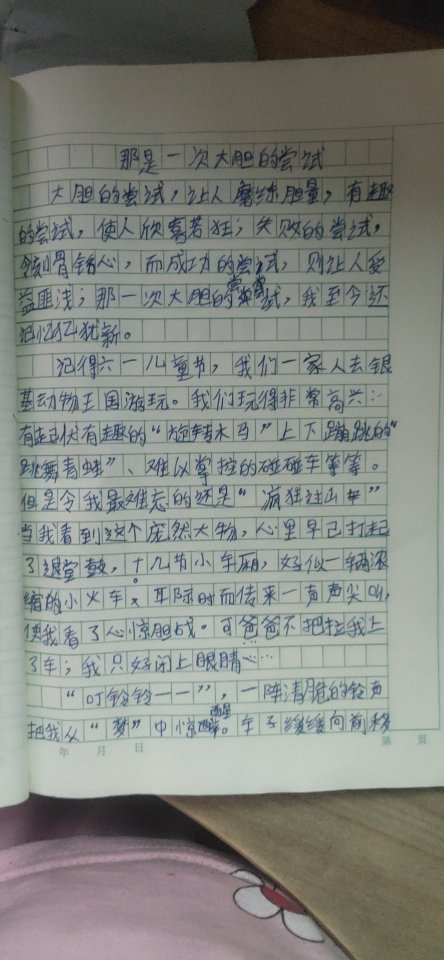 那是一次大胆的尝试
大胆的尝试，让人磨练胆量，有趣
的尝试，使人欣喜若狂；失败的尝试，
令刻骨铭心，而成功的尝试，则让人受
益匪浅；那一次大胆的尝试，我至今还
记忆忆犹新。
记得六一儿童节，我们一家人去银
基动物王国游玩。我们玩得非常高兴：
有起伏有趣的“旋转木马”上下蹦跳的“
跳舞青蛙”、难以掌控的碰碰车等等。
但是令我最难忘的还是“疯狂过山车”
当我看到这个庞然大物，心里早已打起
了退堂鼓，十几节小车厢，好似一辆浓
缩的小火车，耳际时而传来一声声尖叫，
使我看了心惊胆战。可爸爸不把拉我上
了车；我只好闭上眼睛……
“叮铃铃——”，一阵清脆的铃声
把我从“梦”中惊醒。车子缓缓向前移
年 月 日 第 页